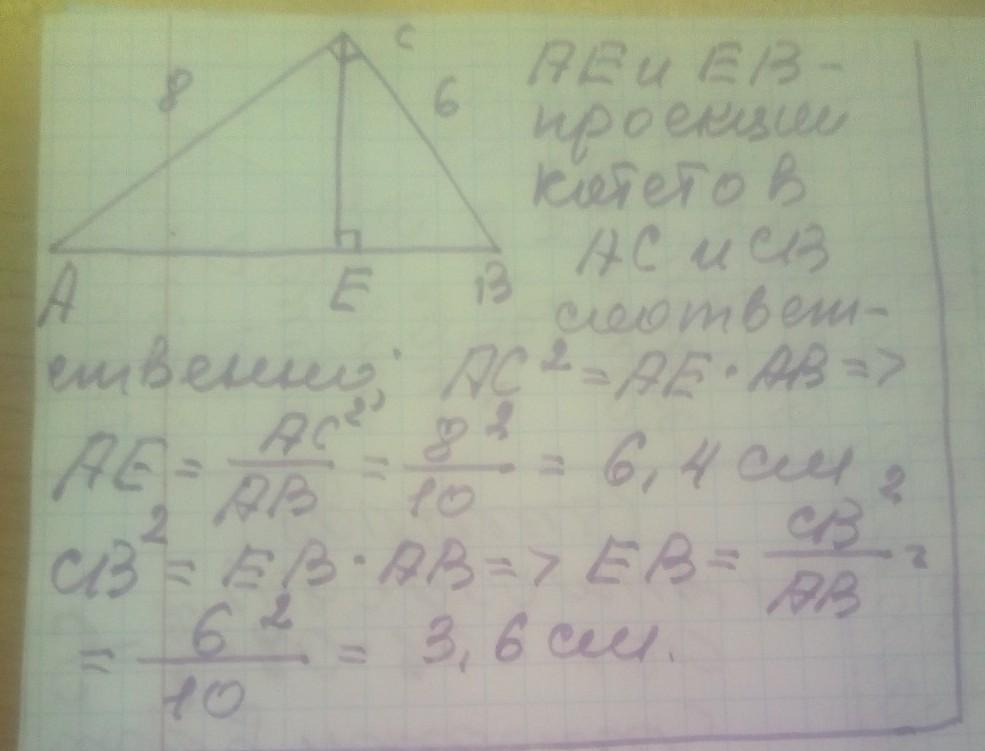 8
C
6
A
E
B
AE и EB-
проекции
катетов
AC и CB
соответ-
ственно; AC² = AE · AB =>
AE = AC²/AB = 8²/10 = 6,4 см
CB² = EB · AB => EB = CB²/AB =
= 6²/10 = 3,6 см.